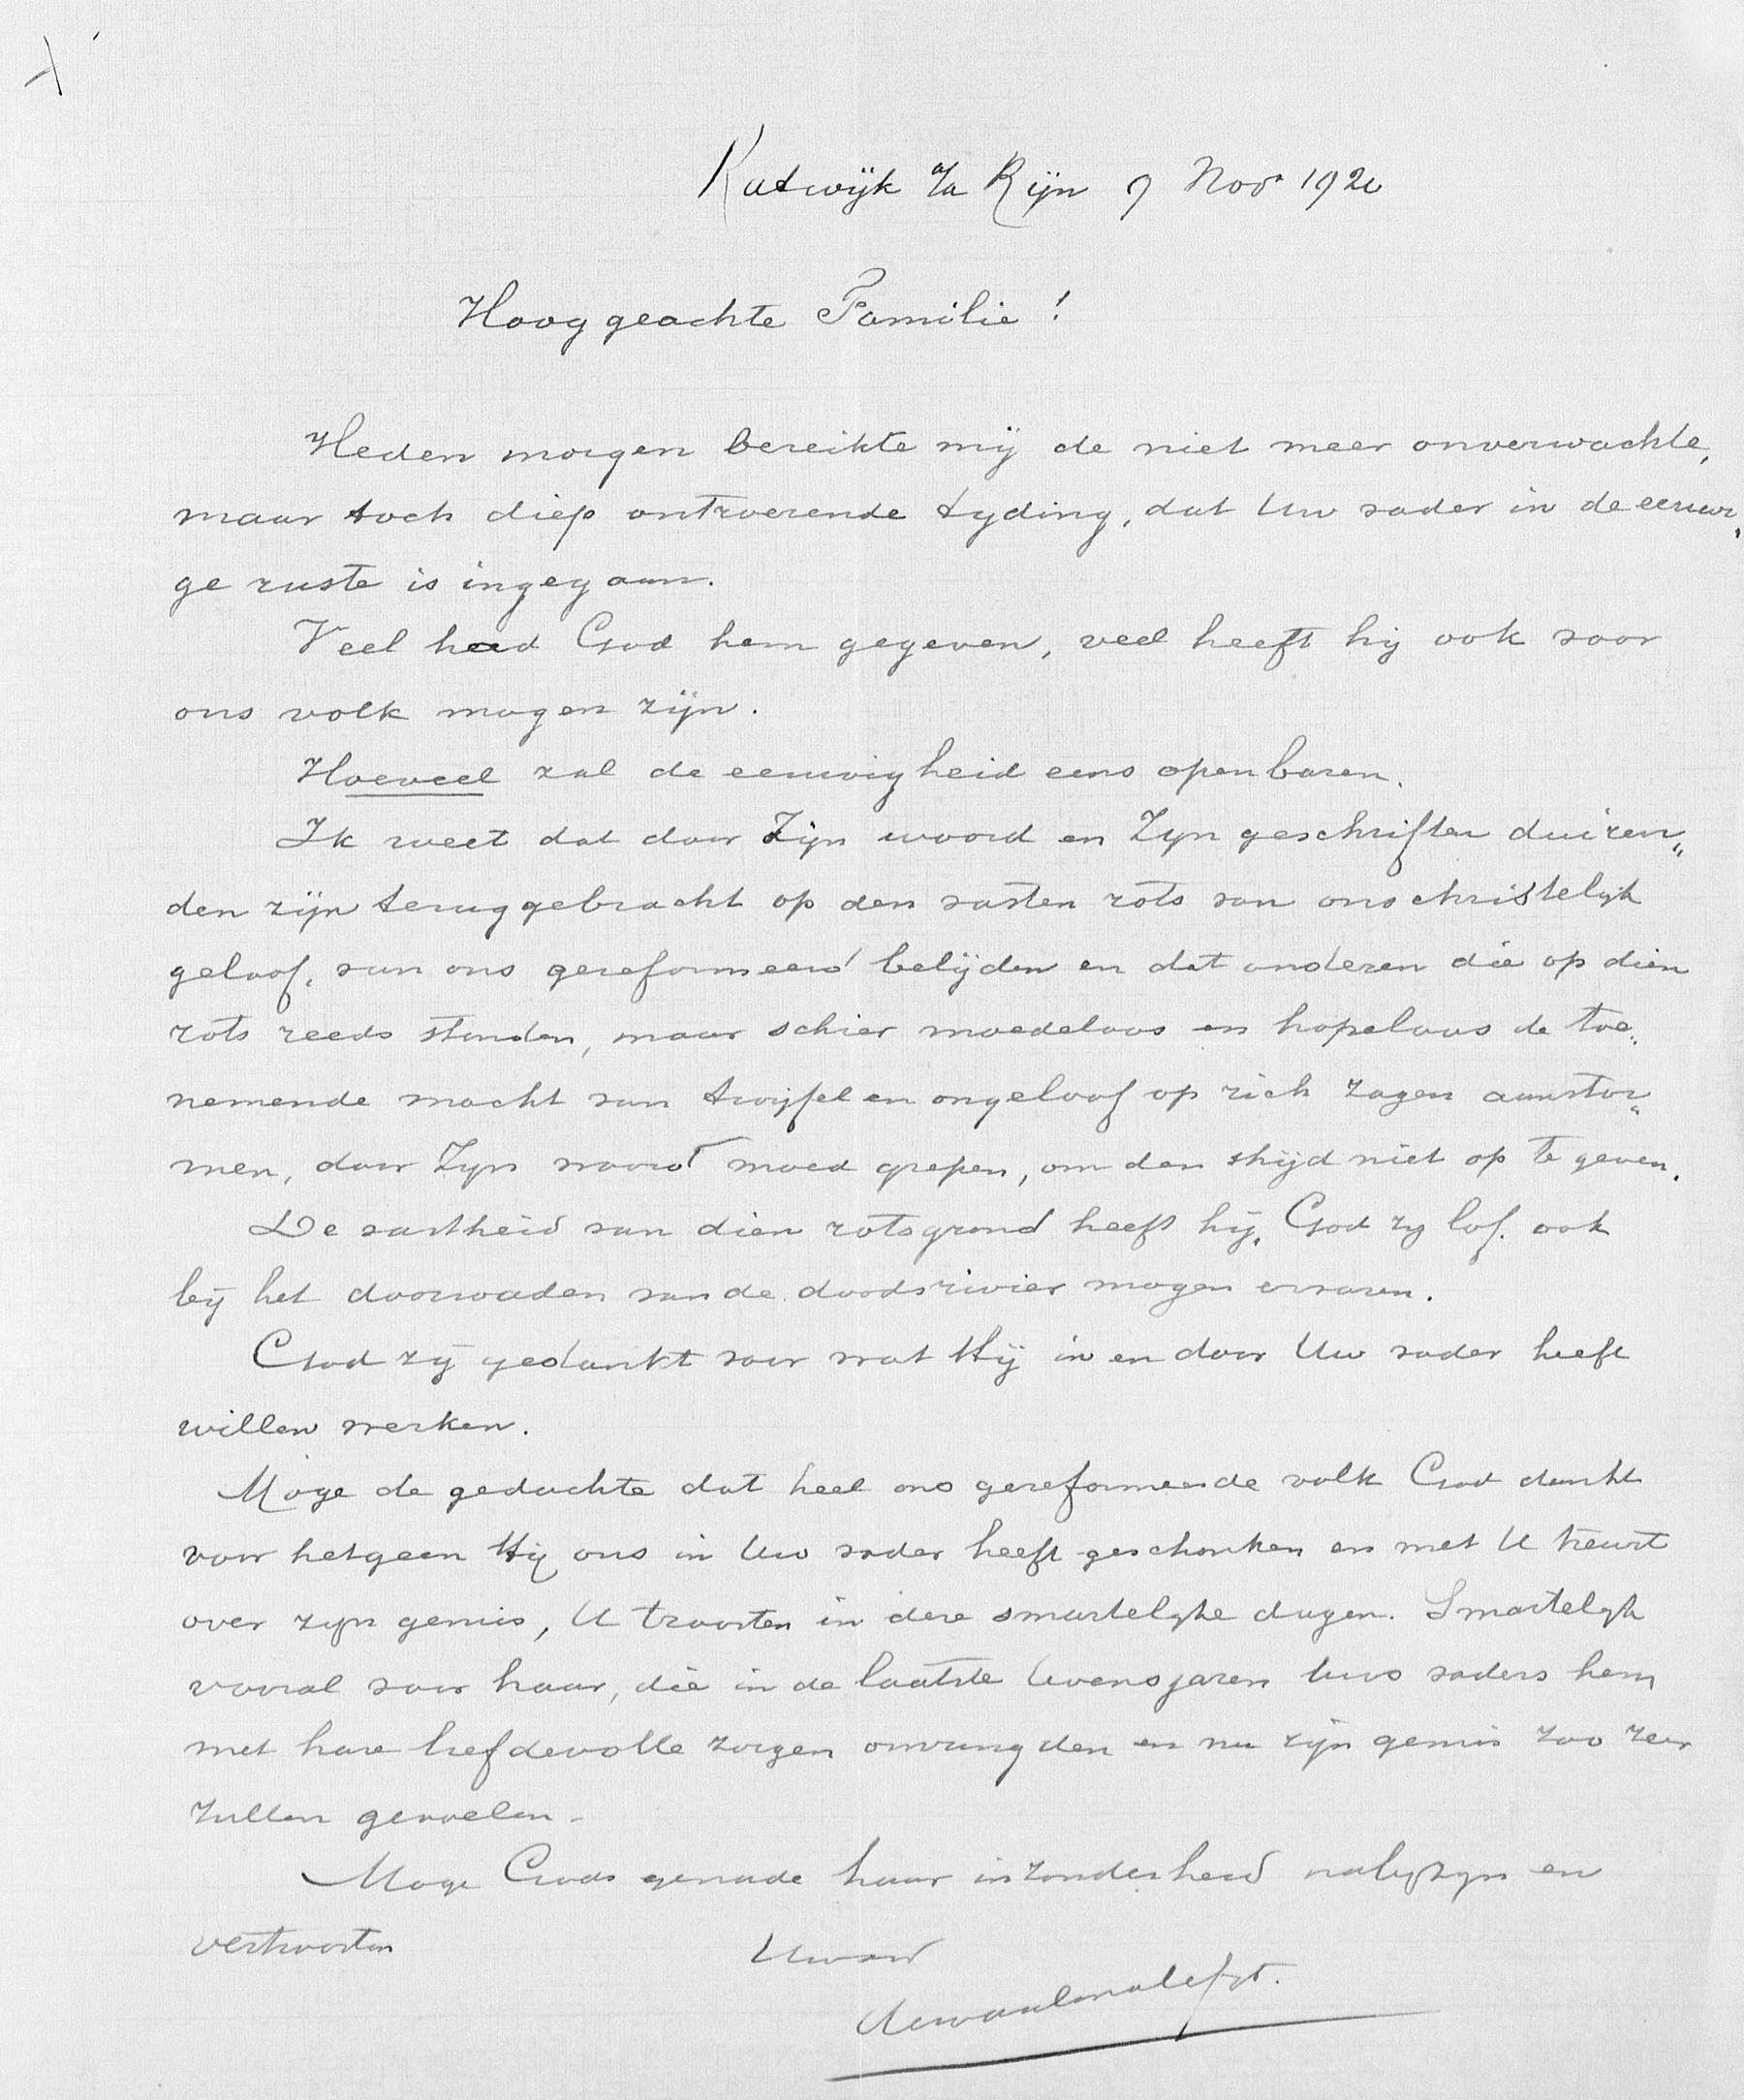 Katwijk a/a Rijn 9 Nov 1920
Hooggeachte Familie!
Heden morgen bereikte mij de niet meer onverwachte,
maar toch diep ontroerende tyding, dat Uw vader in de eeuwi„
ge ruste is ingegaan.
Veel had God hem gegeven, veel heeft hij ook voor
ons volk mogen zijn.
Hoeveel zal de eeuwigheid eens openbaren.
Ik weet dat door Zijn woord en Zyn geschriften duizen„
den zijn teruggebracht op den vasten rots van ons christelijk
geloof, van ons gereformeerd belijden en dat anderen die op dien
rots reeds stonden, maar schier moedeloos en hopeloos de toe„
nemende macht van twijfel en ongeloof op zich zagen aanstor„
men, door Zyn woord moed grepen, om den strijd niet op te geven.
De vastheid van dien rotsgrond heeft hij, God zy lof, ook
bij het doorwaden van de doodsrivier mogen ervaren.
God zij gedankt voor wat Hij in en door Uw vader heeft
willen werken.
Moge de gedachte dat heel ons gereformeerde volk God dankt
voor hetgeen Hij ons in Uw vader heeft geschonken en met U treurt
over zyn gemis, U troosten in deze smartelyke dagen. Smartelyk
vooral voor haar, die in de laatste levensjaren Uws vaders hem
met hare liefdevolle zorgen omringden en nu zijn gemis zoo zeer
zullen gevoelen.
Moge Gods genade haar inzonderheid nabyzyn en
vertroosten
Uw